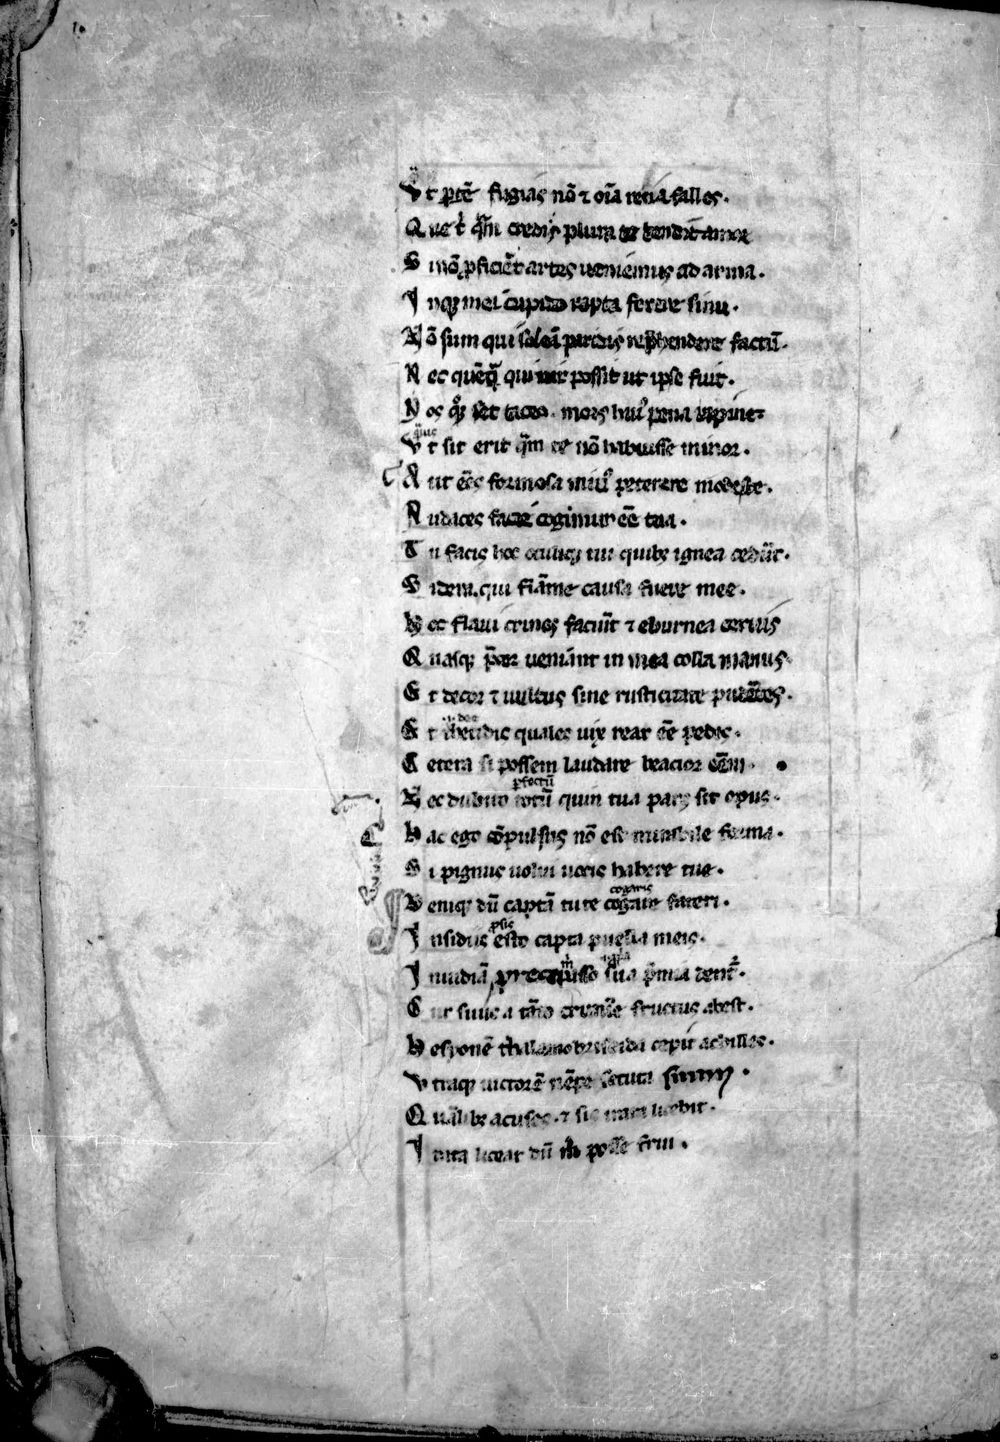 Ut ꝑtē fugias nō ⁊ oīa retia falles.
Que t̄ q̄m credis plura tetendit amor
Si nō ꝓficiēt artes ueniemus ad arma.
Inqꝫ mei cupido rapta ferere sinu.
Nō sum qui soleā paridis rep̄hendere factū.
Nec quēq̄ qui uir possit ut ipse fuit.
Nos qͦqꝫ set taceo. mors huiꝰ pena rapine
Ut sit erit q̄m te nō habuisse minor.
Aut eēs formosa minꝰ peterere modeste.
Audaces facie cogimur eē tua.
Tu facis hoc oculiqꝫ tui quibꝫ ignea cedūt.
Sidera qui flāme causa fuere mee.
Hec flaui crines faciūt ⁊ eburnea ceruis
Quasqꝫ p̄cor ueniant in mea colla manus.
Et decor ⁊ uultus sine rusticitate pudētes.
Et thetidis quales uix rear eē pedes.
Cetera si possem laudare beacior eēm.
Nec dubito totū quin tua pars sit opus.
ꝑfectū
Hac ego cōpulsus nō est mirabile forma.
Si pignus uolui uocis habere tue.
Deniqꝫ dū captā tu te cogare fateri.
cogaris
Insidiis esto capta puella meis.
Inuidiā precor passo sua p̄mia dent᷑.
Cur suus a tāto crimīe fructus abest.
Hesyonē thalamo briseida cepit achilles.
Utraqꝫ uictorē nēpe secuta suum.
Quālibꝫ acuses. ⁊ sis irata licebit.
Irata liceat dū m̄ posse frui.